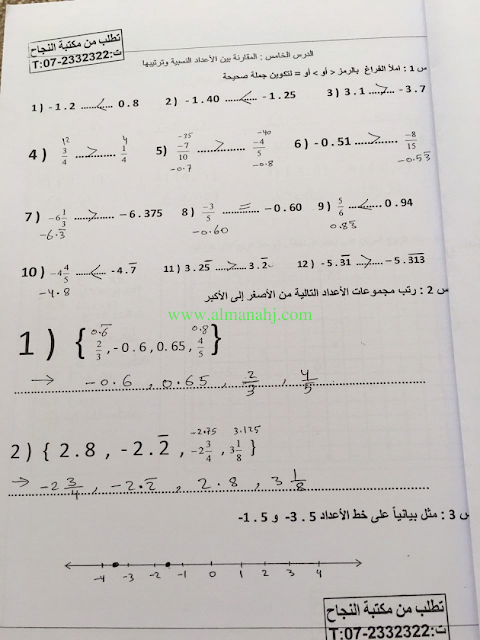 تطلب من مكتبة النجاح
ت:07-2332322:T
الدرس الخامس : المقارنة بين الأعداد النسبية وترتيبها
س 1 : املأ الفراغ بالرمز < أو > أو = لتكوين جملة صحيحة
1) -1.2 ....<.... 0.8 2) -1.40 ....<.... -1.25 3) 3.1 ....>.... -3.7
12 4 -35 -40
4) 3/4 ....>.... 1/4 5) -7/10 ....>.... -4/5 6) -0.51 ....>.... -8/15
-0.7 -0.8 -0.53̅
7) -6 1/3 ....>.... -6.375 8) -3/5 ....=.... -0.60 9) 5/6 ....<.... 0.94
-6.3̅ -0.60 0.83̅
10) -4 4/5 ....<.... -4.7̅ 11) 3.25̅ ....>.... 3.2̅ 12) -5.3̅1̅ ....>.... -5.3̅1̅3̅
-4.8
س 2 : رتب مجموعات الأعداد التالية من الأصغر إلى الأكبر
www.almanahj.com
0.6̅ 0.8
1) { 2/3 , -0.6 , 0.65 , 4/5 }
→ -0.6 , 0.65 , 2/3 , 4/5
-2.75 3.125
2) { 2.8 , -2.2̅ , -2 3/4 , 3 1/8 }
→ -2 3/4 , -2.2̅ , 2.8 , 3 1/8
س 3 : مثل بيانياً على خط الأعداد 3.5- و 1.5-
-4 -3 -2 -1 0 1 2 3 4
تطلب من مكتبة النجاح
ت:07-2332322:T